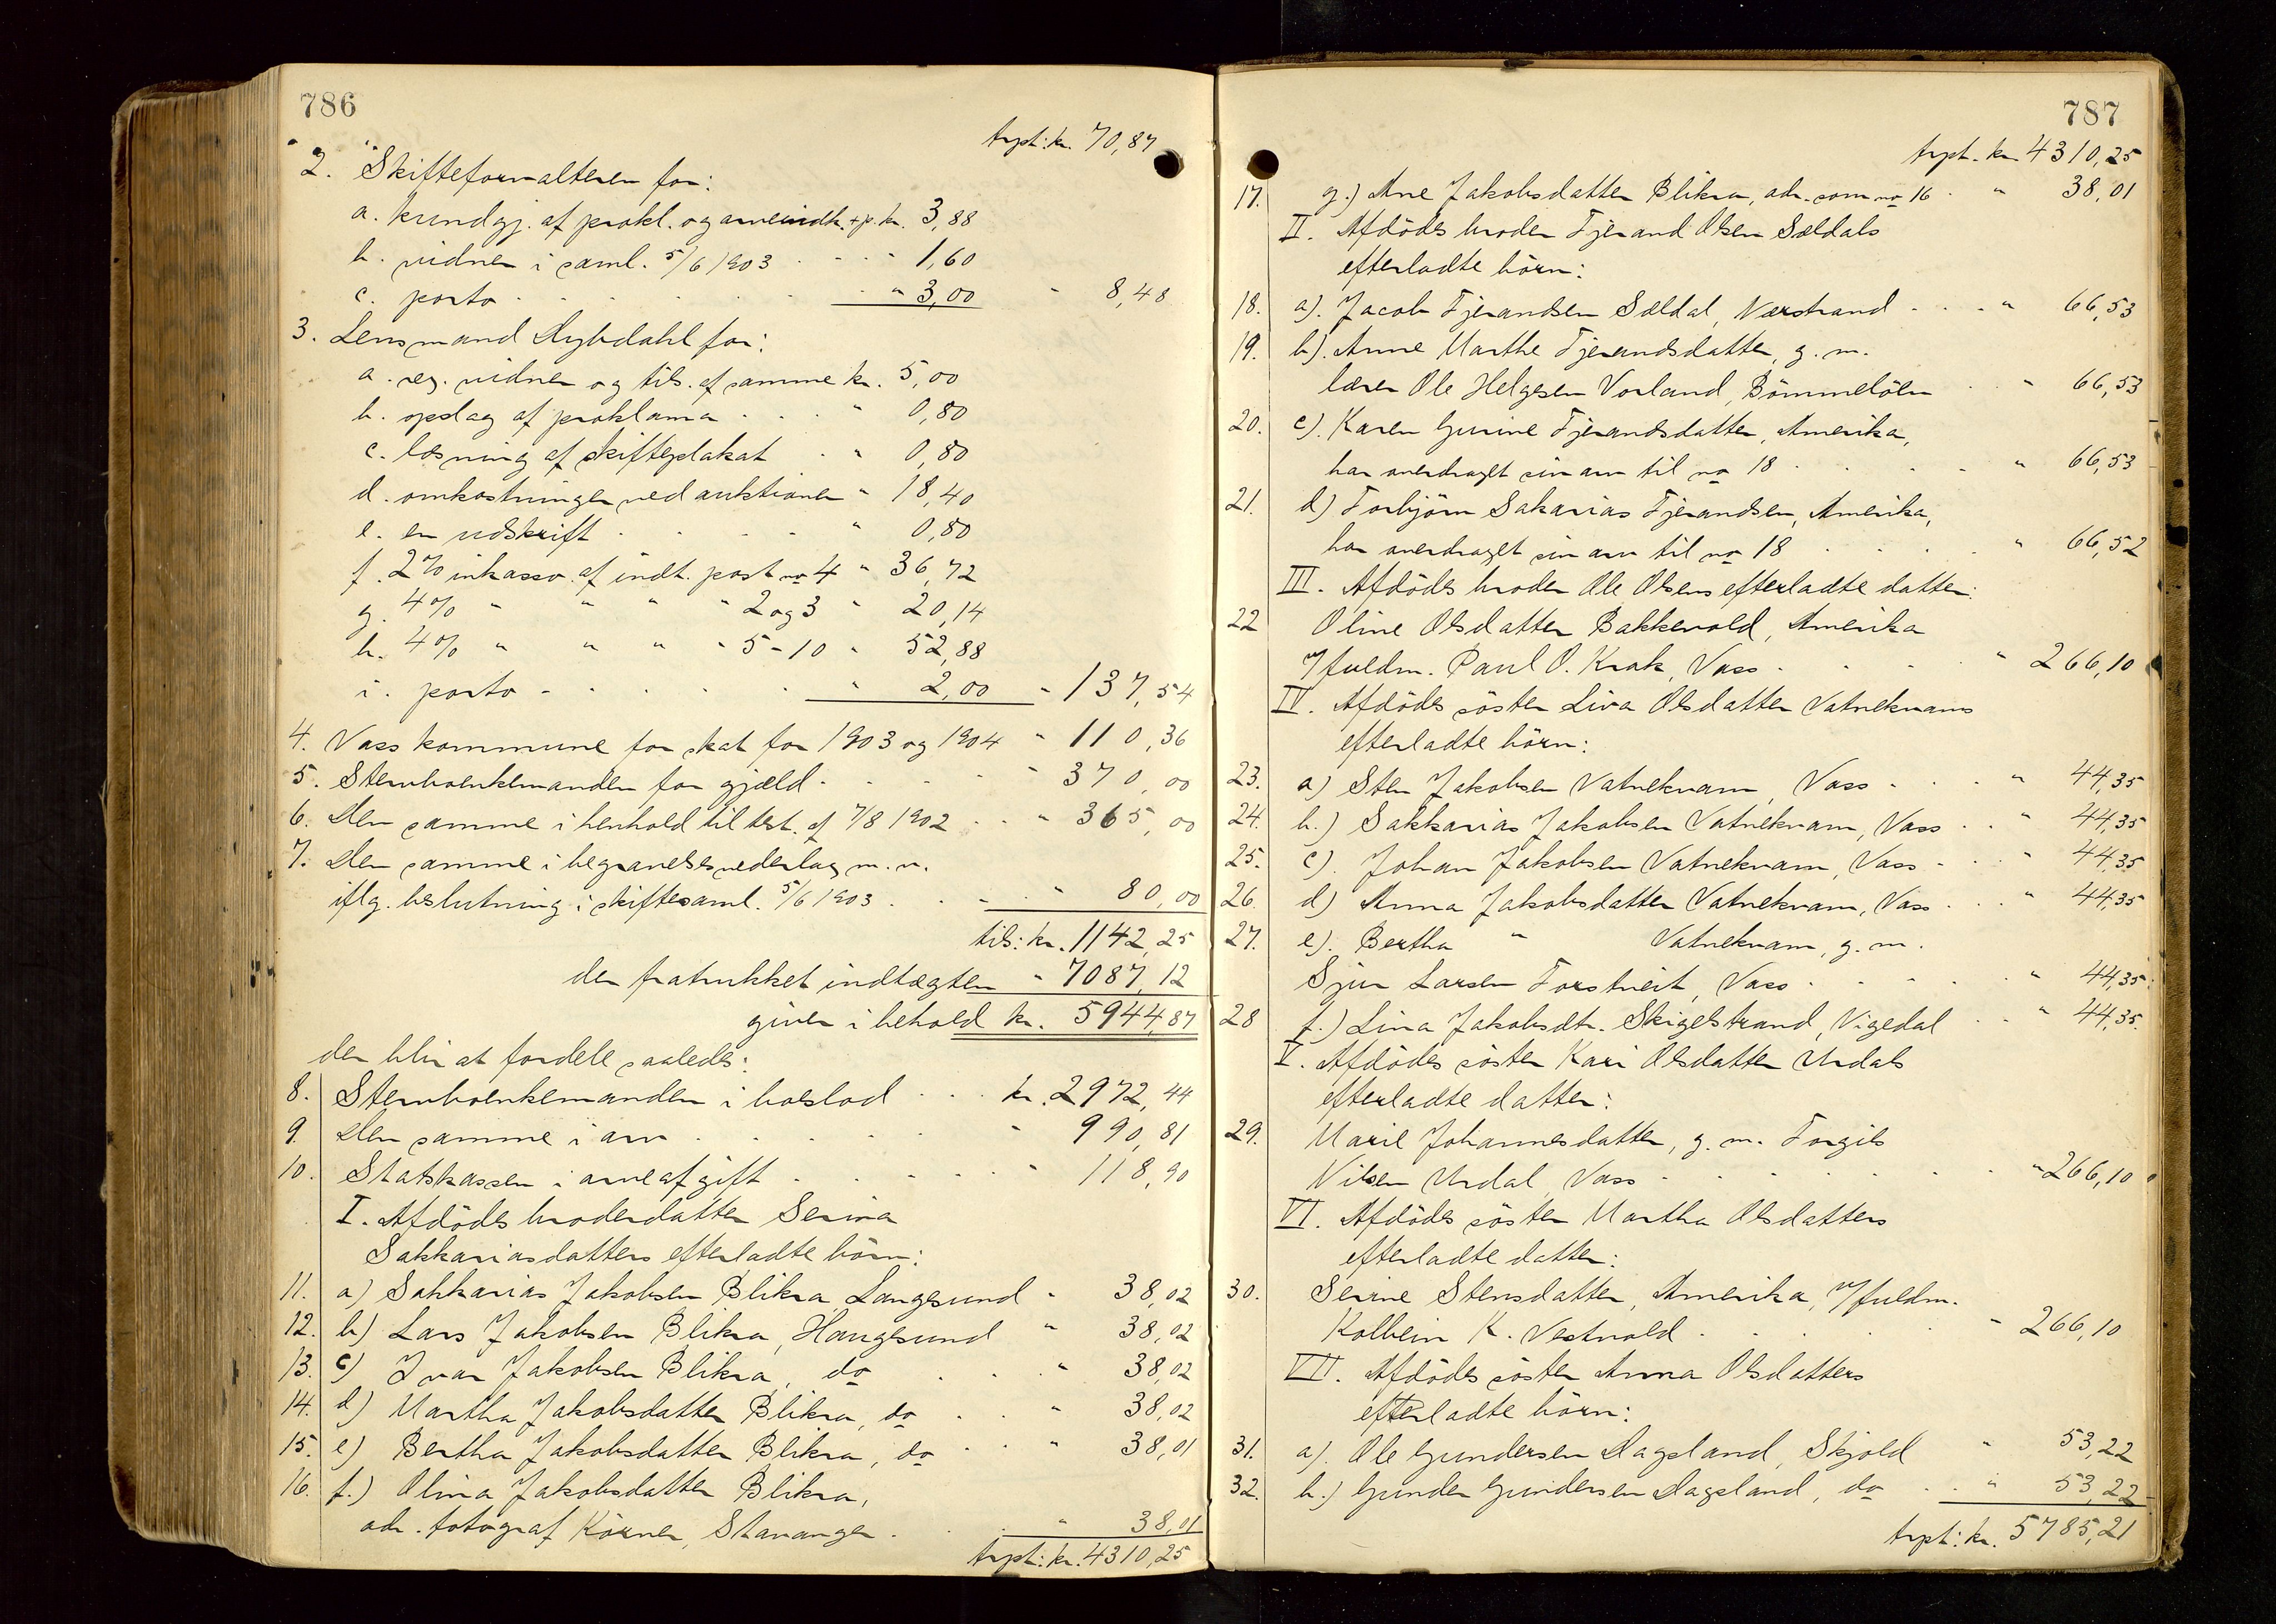 786
trpt: kr. 70,87
2. Skifteforvalteren for:
a. kundgj. af prokl. og arveindk. + p. kr. 3,88
b. vidner i saml. 5/6 1903 . . . . 1,60
c. porto . . . . . . " 3,00 " 8,48
3. Lensmand Dybdahl for:
a. reg. vidner og tils. af samme kr. 5,00
b. opslag af proklama . . . " 0,80
c. læsning af skifteplakat . " 0,80
d. omkostninger ved auktionen " 18,40
e. en udskrift . . . . " 0,80
f. 2% inkasso af indt. post no 4 " 36,72
g. 4% " " " " 2 og 3 " 20,14
h. 4% " " " " 5-10 " 52,88
i. porto . . . . . " 2,00 " 137,54
4. Voss kommune for skat for 1903 og 1904 " 110,36
5. Stervboenkemanden for gjæld . . . . " 370,00
6. Den samme i henhold til test. af 7/8 1902 . . " 365,00
7. Den samme i begravelsesvederlag m. v.
iflg. beslutning i skiftesaml. 5/6 1903 . . . . " 80,00
tils: kr. 1142,25
der fratrukket indtægten " 7087,12
giver i behold kr. 5944,87
der blir at fordele saaledes:
8. Stervboenkemanden i boslod . . . kr. 2972,44
9. Den samme i arv . . . . . " 990,81
10. Statskassen i arveafgift . . . . . " 118,90
I. Afdödes broderdatter Serina
Sakkariasdatters efterladte börn:
11. a) Sakkarias Jakobsen Blikra, Langesund " 38,02
12. b) Lars Jakobsen Blikra, Haugesund " 38,02
13. c) Ivar Jakobsen Blikra, do . . . " 38,02
14. d) Martha Jakobsdatter Blikra, do . . " 38,02
15. e) Bertha Jakobsdatter Blikra, do . . . " 38,01
16. f.) Olina Jakobsdatter Blikra,
adr. fotograf Körner, Stavanger . . . " 38,01
trpt: kr. 4310,25
787
trpt. kr. 4310,25
17. g.) Ane Jakobsdatter Blikra, adr. som no 16 . " 38,01
II. Afdödes broder Tjerand Olsen Sældals
efterladte börn:
18. a). Jacob Tjerandsen Sældal, Nærstrand . . . " 66,53
19. b). Anne Marthe Tjerandsdatter, g. m.
lærer Ole Helgesen Vorland, Bömmelöen . " 66,53
20. c). Karen Gurine Tjerandsdatter, Amerika,
har overdraget sin arv til no 18 . . . . . " 66,53
21. d) Torbjörn Sakarias Tjerandsen, Amerika,
har overdraget sin arv til no 18 . . . . . " 66,52
III. Afdödes broder Ole Olsens efterladte datter:
22 Oline Olsdatter Bakkevold, Amerika
v/ fuldm. Paul O. Krok, Voss . . . . . " 266,10
IV. Afdödes söster Liva Olsdatter Vatnekvams
efterladte börn:
23. a) Sten Jakobsen Vatnekvam, Voss . . . " 44,35
24. b.) Sakkarias Jakobsen Vatnekvam, Voss . . " 44,35
25. c). Johan Jakobsen Vatnekvam, Voss . . . " 44,35
26. d) Anna Jakobsdatter Vatnekvam, Voss . . . " 44,35
27. e). Bertha " Vatnekvam, g. m.
Sjur Larsen Torstveit, Voss . . . . . " 44,35
28 f.) Lina Jakobsdtr. Skigelstrand, Vigedal . . " 44,35.
V. Afdödes söster Kari Olsdatter Urdals
efterladte datter:
29. Marie Johannesdatter, g. m. Torgils
Nilsen Urdal, Voss . . . . . . . " 266,10
VI. Afdödes söster Martha Olsdatters
efterladte datter:
30. Serine Stensdatter, Amerika, v/ fuldm.
Kolbein K. Vestvold . . . . . " 266,10
VII. Afdödes söster Anna Olsdatters
efterladte börn:
31. a). Ole Gundersen Dagsland, Skjold " 53,22
32. b.) Gunder Gundersen Dagsland, do . . " 53,22
trpt: kr. 5785,21